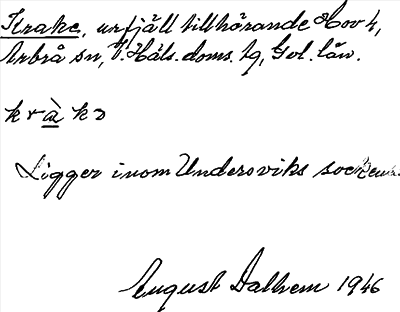 Krake, urfjäll tillhörande Hov 4,
Arbrå sn, V. Häls. doms. tg, Gvl. län.
kràkɔ
Ligger inom Undersviks socken.
August Dalhem 1946